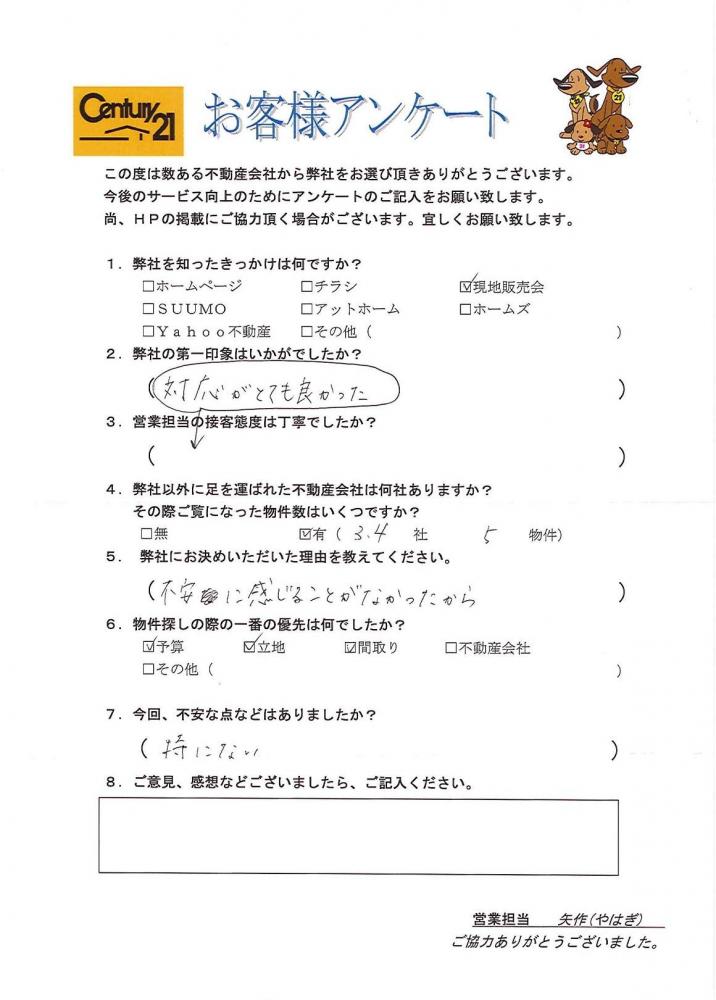 Century 21
お客様アンケート
この度は数ある不動産会社から弊社をお選び頂きありがとうございます。
今後のサービス向上のためにアンケートのご記入をお願い致します。
尚、ＨＰの掲載にご協力頂く場合がございます。宜しくお願い致します。
１．弊社を知ったきっかけは何ですか？
□ホームページ □チラシ ☑現地販売会
□ＳＵＵＭＯ □アットホーム □ホームズ
□Ｙａｈｏｏ不動産 □その他（ ）
２．弊社の第一印象はいかがでしたか？
（対応がとても良かった ）
３．営業担当の接客態度は丁寧でしたか？
（ ）
４．弊社以外に足を運ばれた不動産会社は何社ありますか？
その際ご覧になった物件数はいくつですか？
□無 ☑有（ 3.4 社 5 物件）
５．弊社にお決めいただいた理由を教えてください。
（不安に感じることがなかったから ）
６．物件探しの際の一番の優先は何でしたか？
☑予算 ☑立地 ☑間取り □不動産会社
□その他（ ）
７．今回、不安な点などはありましたか？
（ 特にない ）
８．ご意見、感想などございましたら、ご記入ください。
営業担当 矢作（やはぎ）
ご協力ありがとうございました。